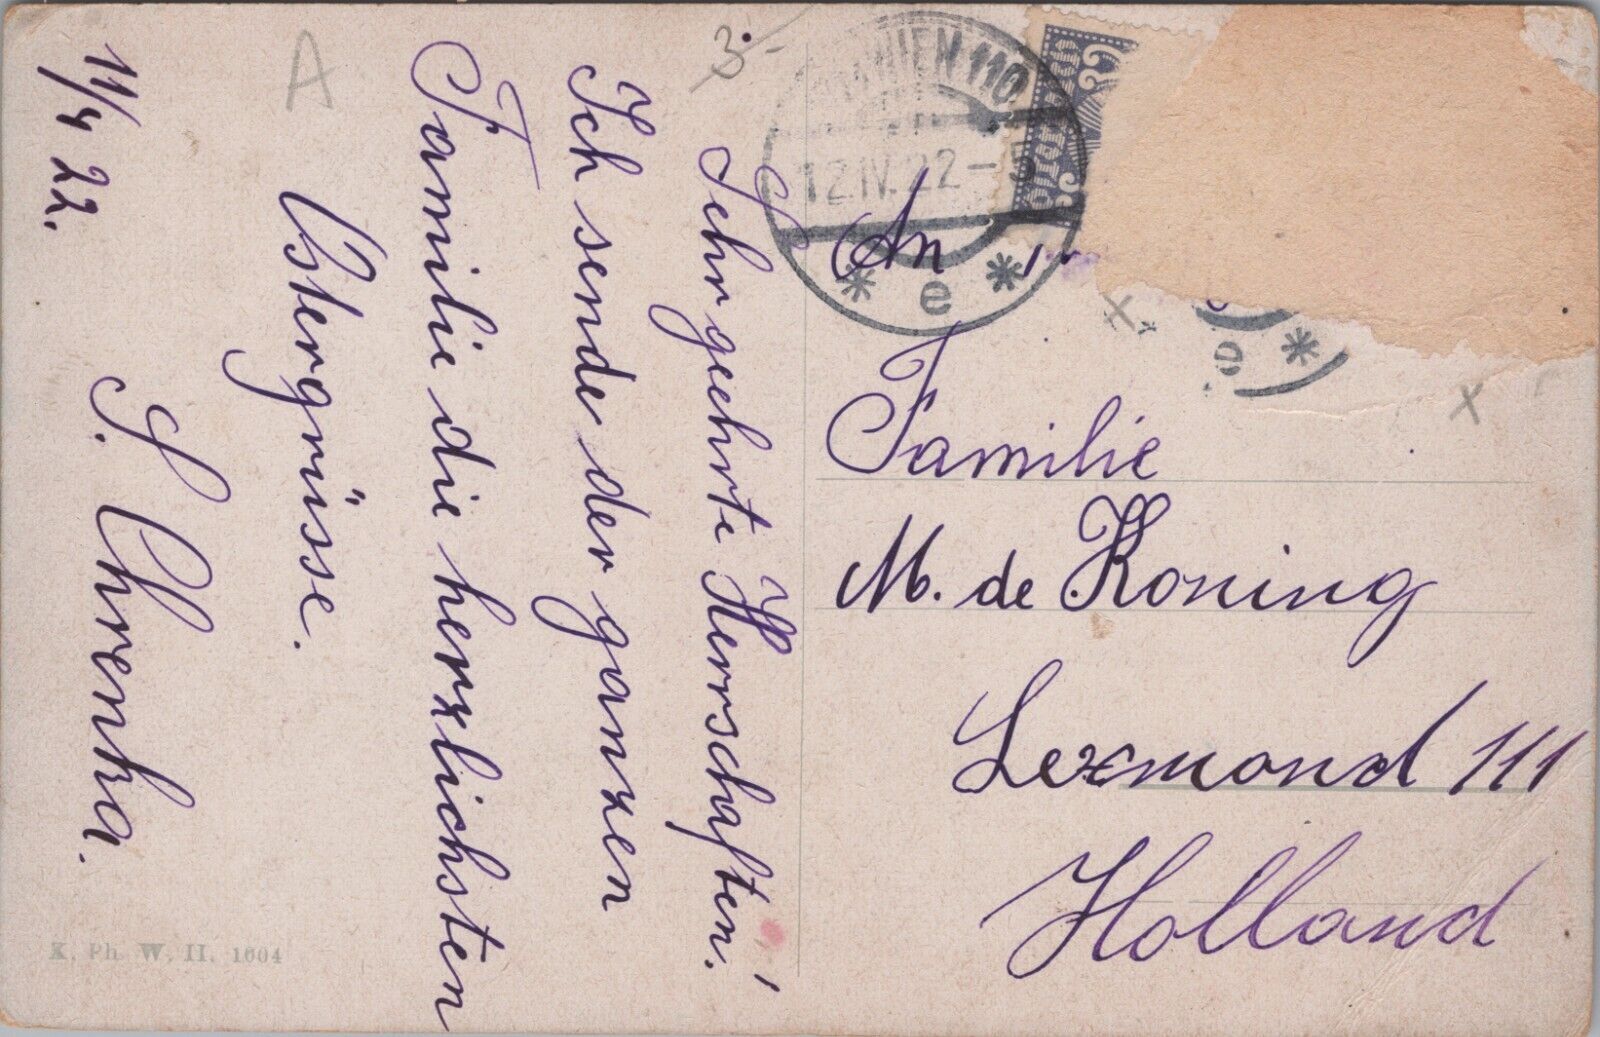 11/4 22.
A
3.-
Sehr geehrte Herrschaften!
Ich sende der ganzen
Familie die herzlichsten
Ostergrüsse.
S. Chrenka.
K. Ph. W. II. 1604
WIEN 110
12.IV.22-5
* e *
An
Familie
M. de Koning
Lexmond 111
Holland
e *